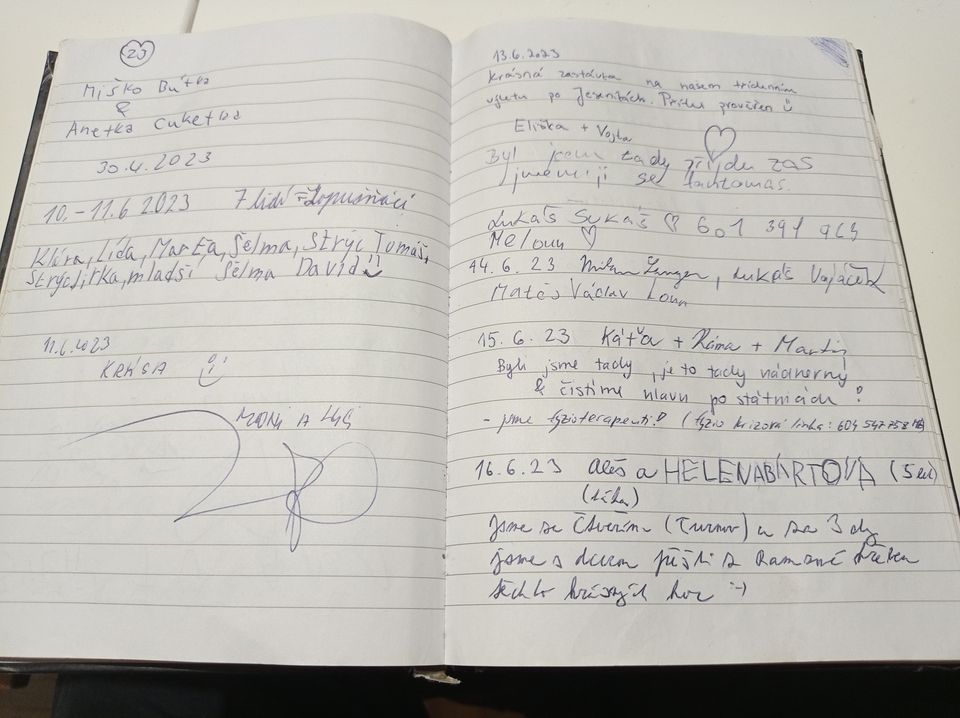 23
Miško Bútka
&
Anetka Cuketka
30.4.2023
10.-11.6 2023 7 lidí = Lopušňáci
Klára, Lída, Marta, Šelma, strýc Tomáš,
strýc Jirka, mladší Šelma David
11.6.2023
KRÁSA
MONI A
13.6.2023
Krásná zastávka na našem třídenním
výletu po Jeseníkách. Prītul prověřen Ü
Eliška + Vojta
Byl jsem tady přijdu zas
jmenuji se fantomas.
Lukáš Sukáš ♡ 601 391 963
Meloun ♡
14.6.23 Milan, Lukáš Vojáček
Matěs Václav Loun
15.6.23 Káťa + Róma + Martin
Byli jsme tady, je to tady nádherný
& čistíme hlavu po státnicích!
- jsme fyzioterapeuti! (fyzio krizová linka: 604 547 758
16.6.23 Aleš a HELENABÁRTOVÁ (5 let)
(táta)
Jsme ze Čtveřína (Turnov) a za 3 dny
jsme s dcerou přešli z Ramzové hřeben
těchto krásných hor :-)